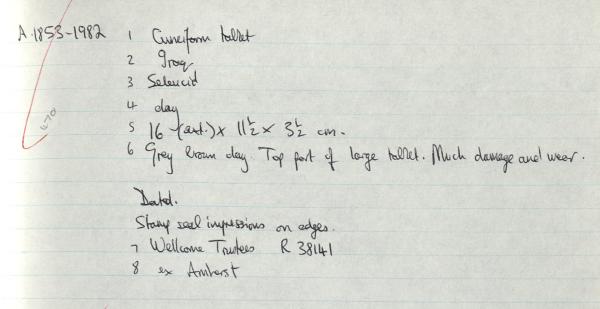 A.1853-1982 1 Cuneiform tablet
2 Iraq
3 Seleucid
4 clay
5 16 (ext.) x 11½ x 3½ cm.
6 Grey brown clay. Top part of large tablet. Much damage and wear.
Dated.
Stamp seal impressions on edges.
7 Wellcome Trustees R 38141
8 ex Amherst